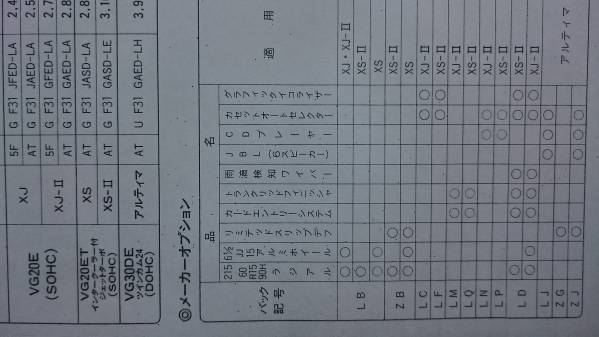 2,4
2,5
2,7
2,8
2,8
3,1
3,9
G F31 JFED-LA
G F31 JAED-LA
G F31 GFED-LA
G F31 GAED-LA
G F31 JASD-LA
G F31 GASD-LE
U F31 GAED-LH
5F
AT
5F
AT
AT
AT
AT
XJ
XJ-II
XS
XS-II
アルティマ
VG20E
(SOHC)
VG20ET
インタークーラー付
ジェットターボ
(SOHC)
VG30DE
ツインカム24
(DOHC)
◎メーカーオプション
適用
XJ・XJ-II
XS-II
XS
XS-II
XS
XJ-II
XS-II
XJ-II
XS-II
XJ-II
XS-II
XS-II
XJ-II
アルティマ
品名
グラフィックイコライザー
カセットオートセレクター
CDプレーヤー
JBL(6スピーカー)
雨滴検知ワイパー
トランクリッドフィニッシャ
カードエントリーシステム
リミテッドスリップデフ
6½JJ15アルミホイール
215 60 R15 90H ラジアル
パック記号
LB
ZB
LC
LF
LM
LQ
LN
LP
LD
LJ
ZG
ZJ